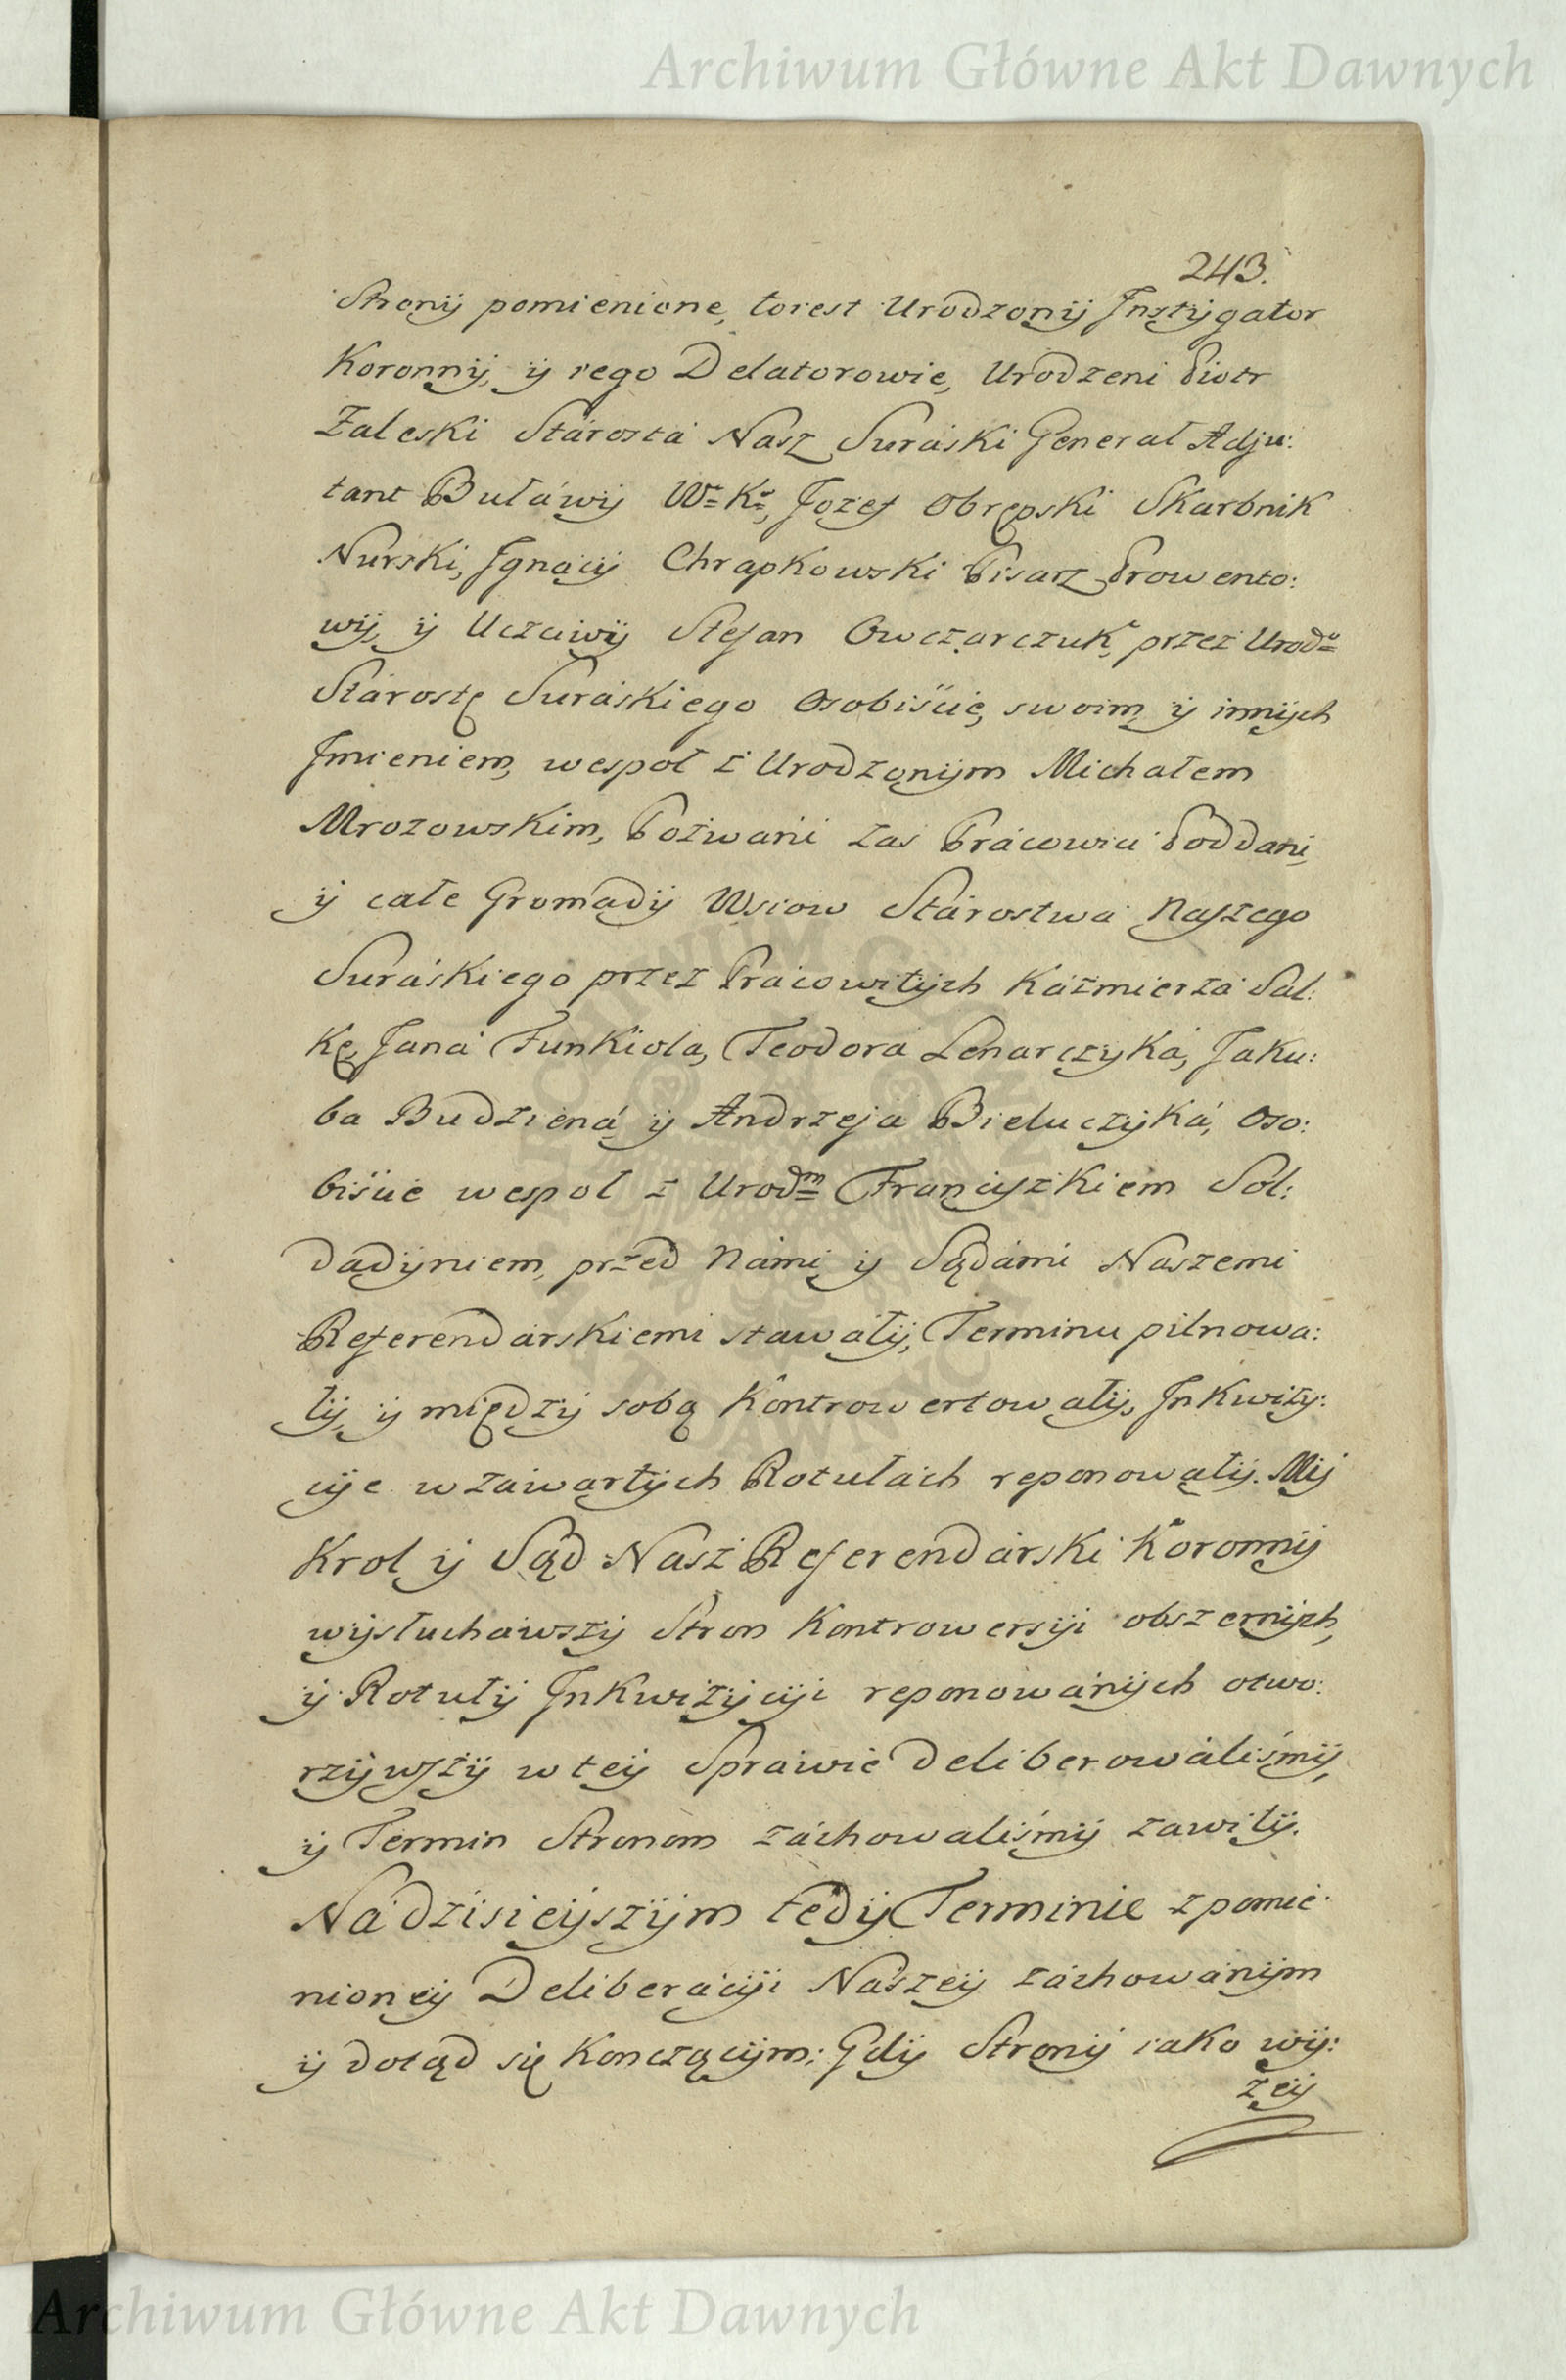 Archiwum Główne Akt Dawnych
243.
Strony pomienione, torest Urodzony Jnstygator
Koronny, y rego Delatorowie, Urodzeni Piotr
Zaleski Stárosta Nasz Suráski Generał Adju:
tant Buławy W° K°, Jozef Obrępski Skarbnik
Nurski, Jgnacy Chrapkowski Pisarz Prowento:
wy, y Uczciwy Stefan Owczarczuk, przez Urod°
Stárostę Suráskiego Osobiście, swoim y innych
Jmieniem, wespoł z Urodzonym Michałem
Mrozowskim, Pozwáni zas Prácowici Poddáni,
y całe Gromady Wsiow Stárostwa Naszego
Suráskiego przez Prácowitych Káźmierzá Sal:
kę, Janá Funkiola, Teodorá Lenarczyká, Jaku:
ba Budziená y Andrzeja Bieluczyká, Oso:
biście wespoł z Urodm Franciszkiem Sol:
dadyniem, przed Námi y Sądámi Naszemi
Referendarskiemi stawáły, Terminu pilnowa:
ły, y między sobą kontrowertowáły, Jnkwizy:
cye w záwártych Rotułách reponowáły. My
Krol y Sąd Nasz Referendárski Koronny
wysłucháwszy Stron Kontrowersyi obszernych,
y Rotuły Jnkwizycyi reponowánych otwo:
rzywszy w tey Spráwie deliberowáliśmy,
y Termin Stronom záchowaliśmy zawity.
Ná dzisieyszym tedy Terminie z pomie
nioney Deliberácyi Nászey záchowánym
y dotąd się kończącym; Gdy Strony iáko wy:
żey
Archiwum Główne Akt Dawnych